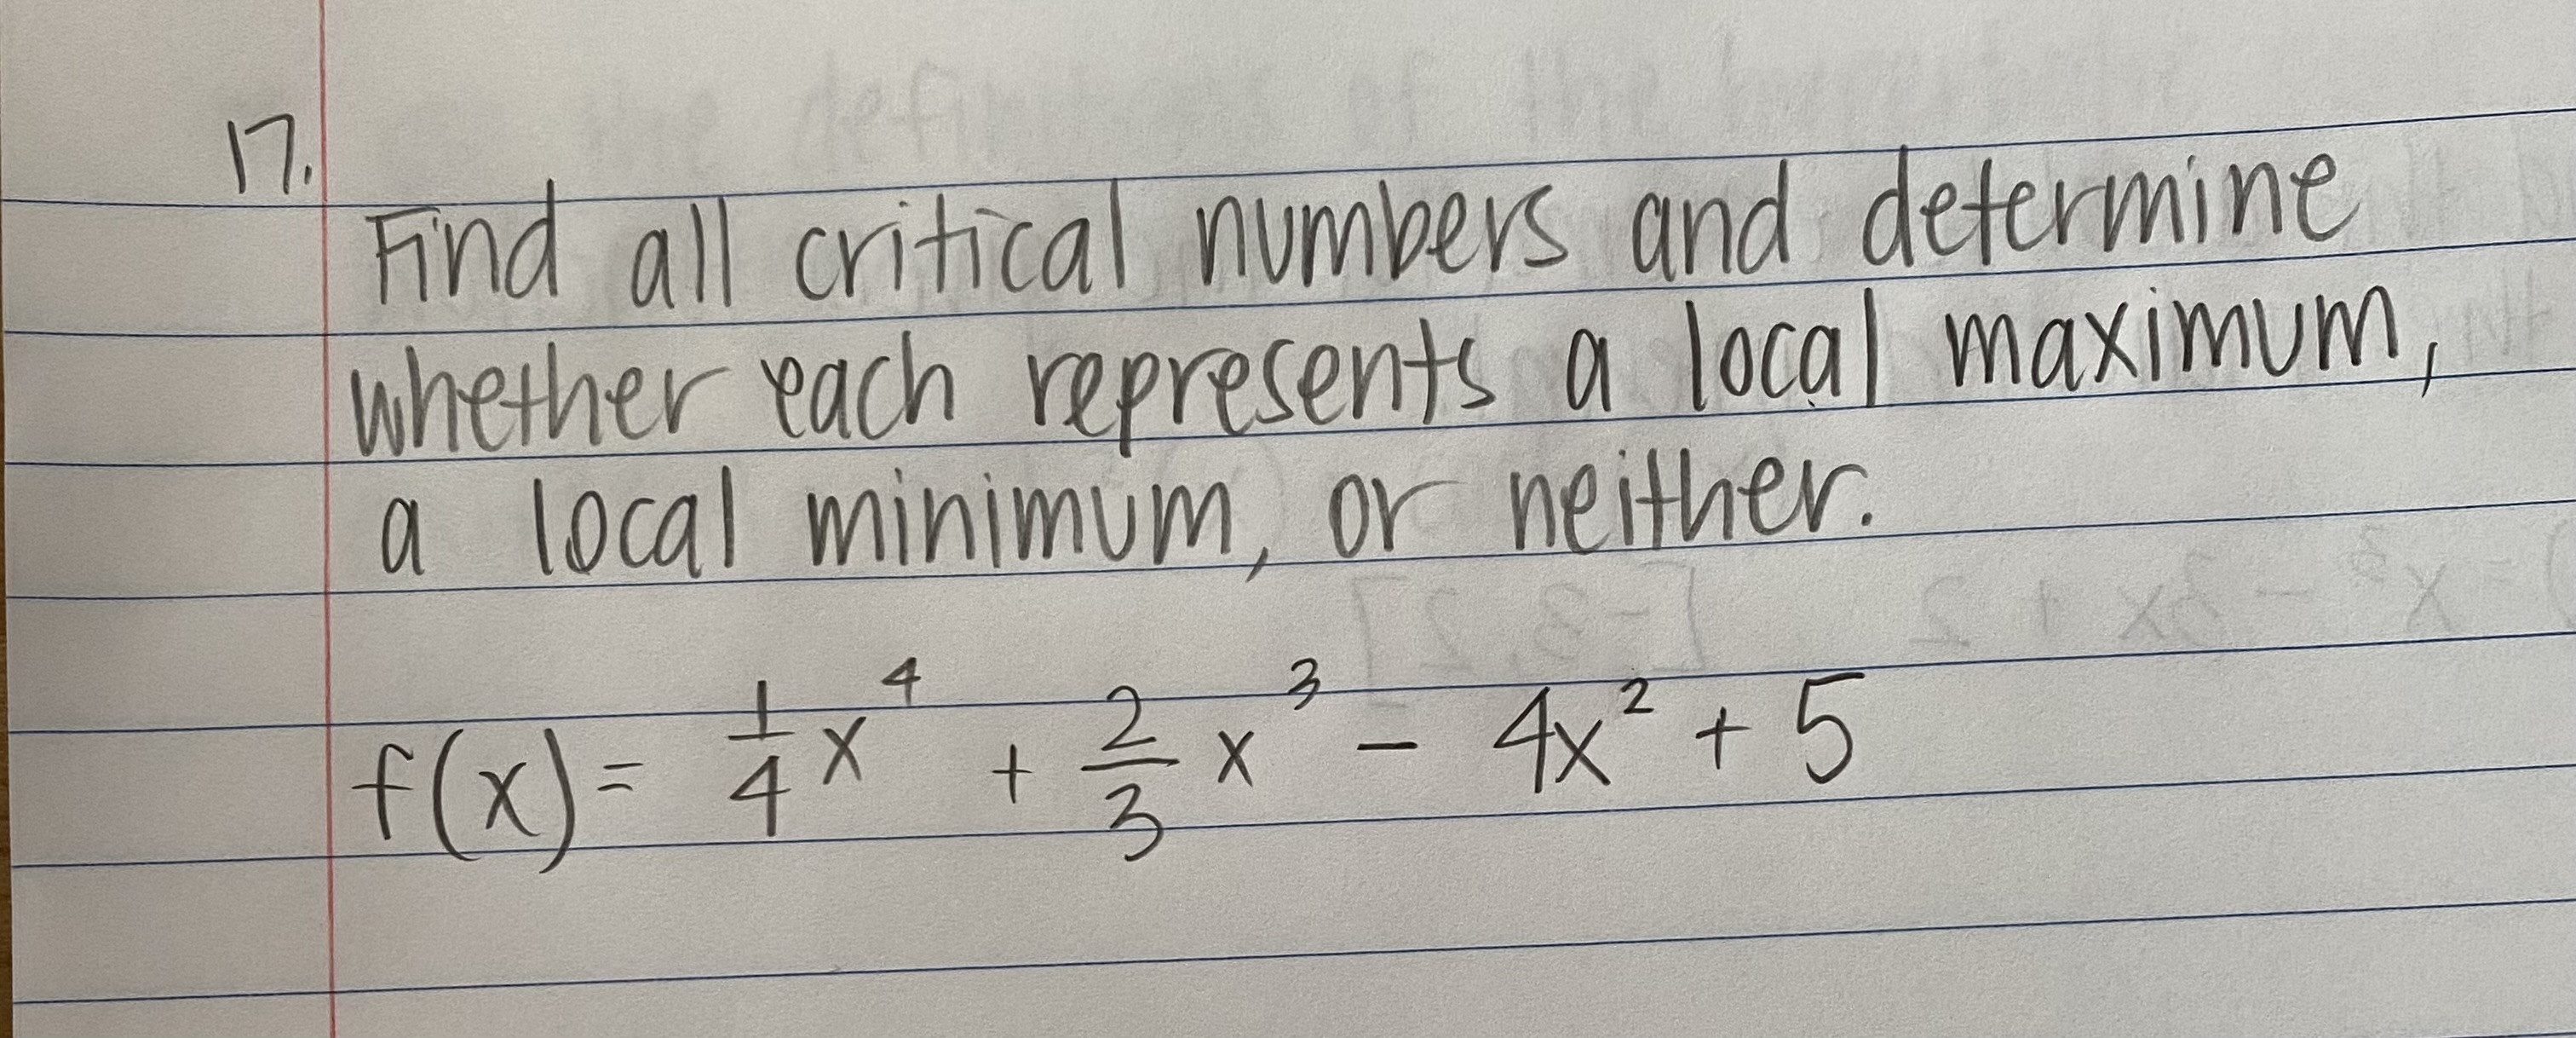 17.
Find all critical numbers and determine
whether each represents a local maximum,
a local minimum, or neither.
f(x) = 1/4 x^4 + 2/3 x^3 - 4x^2 + 5